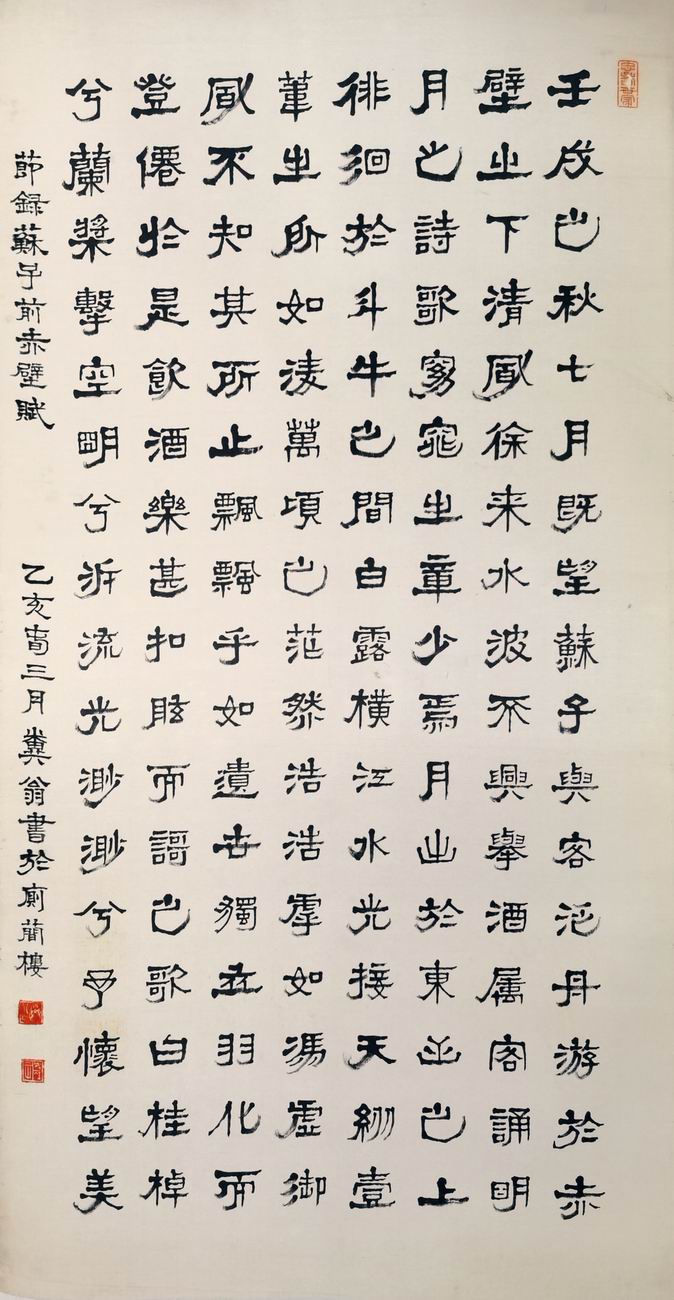 壬戌之秋七月既望蘇子與客泛舟游於赤
壁之下清風徐来水波不興舉酒属客誦明
月之詩歌窈窕之章少焉月出於東山之上
徘徊於斗牛之間白露橫江水光接天縱壹
葦之所如淩萬頃之茫然浩浩乎如馮虛御
風不知其所止飄飄乎如遺世獨立羽化而
登僊於是飲酒樂甚扣舷而謌之歌曰桂棹
兮蘭槳擊空明兮泝流光渺渺兮予懷望美
節録蘇子前赤壁賦 乙亥春三月糞翁書於廁簡樓